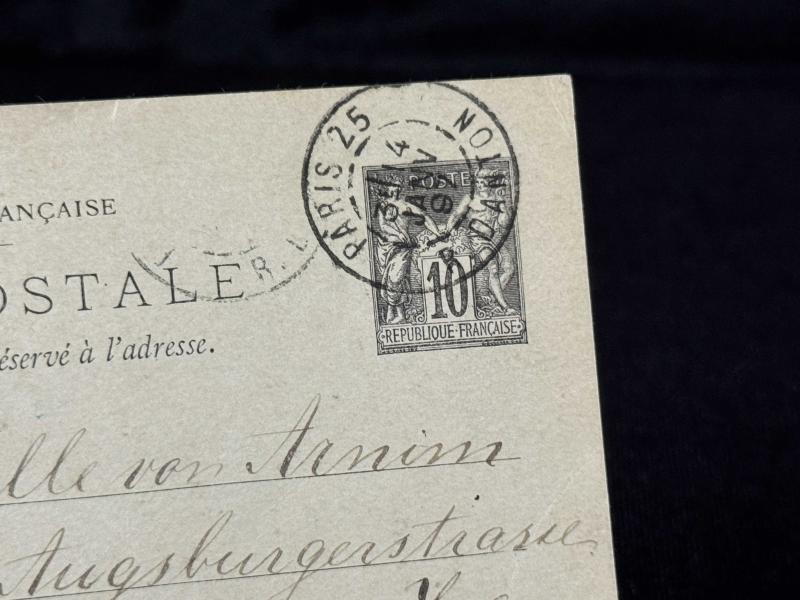 ANÇAISE
OSTALE
éservé à l'adresse.
PARIS 25
R. DANTON
14
JANV
POSTE
10
RÉPUBLIQUE·FRANÇAISE
R.
lle von Arnim
Augsburgerstrasse